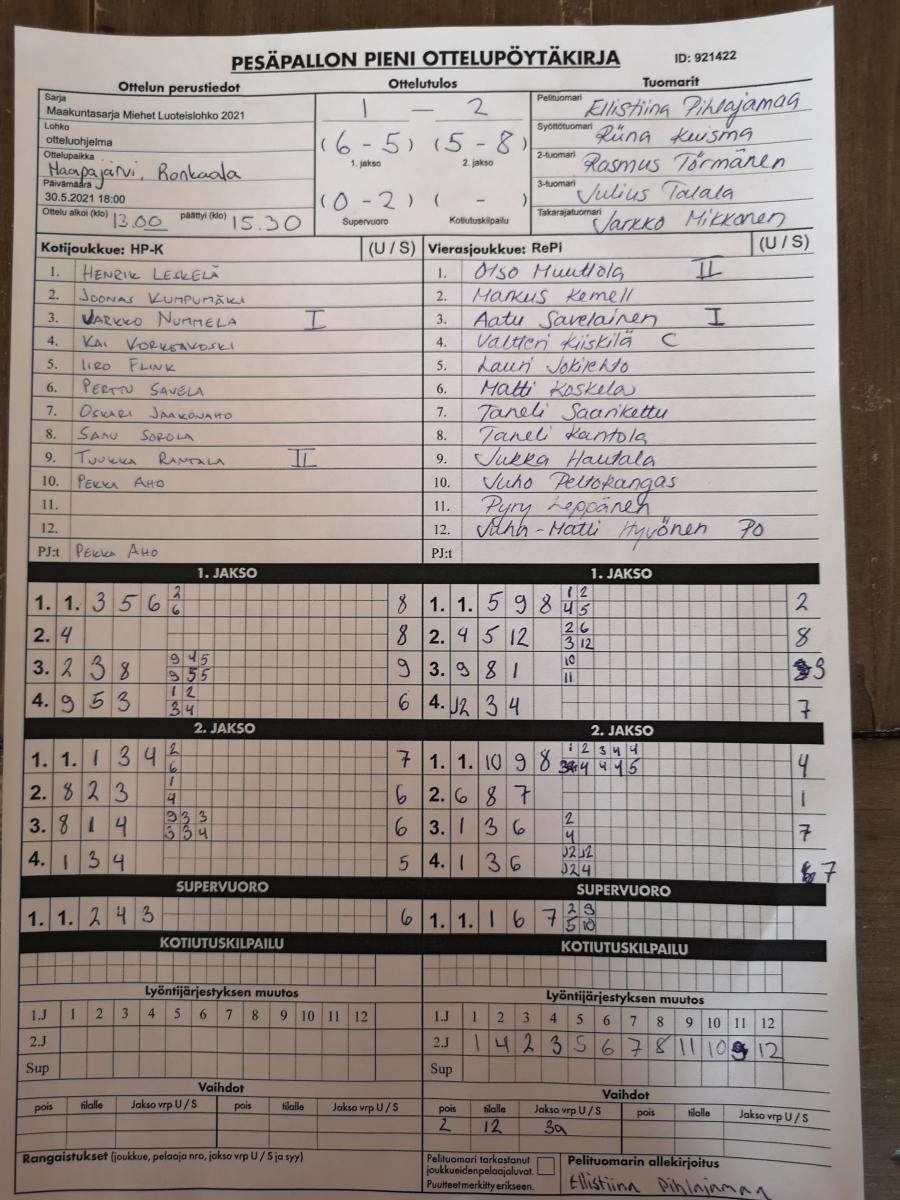 PESÄPALLON PIENI OTTELUPÖYTÄKIRJA ID: 921422
Ottelun perustiedot Ottelutulos Tuomarit
Sarja
Maakuntasarja Miehet Luoteislohko 2021
Lohko
otteluohjelma
Ottelupaikka
Haapajärvi, Ronkaala
Päivämäärä
30.5.2021 18:00
Ottelu alkoi (klo) 13.00 päättyi (klo) 15.30
1 — 2
(6 - 5) (5 - 8)
1. jakso 2. jakso
(0 - 2) ( - )
Supervuoro Kotiutuskilpailu
Pelituomari Ellistiina Pihlajamaa
Syöttötuomari Riina Kuisma
2-tuomari Rasmus Törmänen
3-tuomari Julius Talala
Takarajatuomari Jarkko Mikkonen
Kotijoukkue: HP-K (U / S)
1. HENRIK LESKELÄ
2. JOONAS KUMPUMÄKI
3. JARKKO NUMMELA I
4. KAI KORKEAKOSKI
5. IIRO FLINK
6. PERTTU SAVELA
7. OSKARI JAAKONAHO
8. SAMU SOROLA
9. TUUKKA RANTALA II
10. PEKKA AHO
11.
12.
PJ:t PEKKA AHO
Vierasjoukkue: RePi (U / S)
1. Otso Muuttola II
2. Markus Kemell
3. Aatu Savelainen I
4. Valtteri Kiiskilä C
5. Lauri Jokiehto
6. Matti Koskela
7. Taneli Saarikettu
8. Taneli Kantola
9. Jukka Hautala
10. Juho Peltokangas
11. Pyry Leppänen
12. Juha-Matti Hyvönen PO
PJ:t
1. JAKSO 1. JAKSO
1. 1. 3 5 6 2 8 1. 1. 5 9 8 1 2 2
6 4 5
2. 4 8 2. 4 5 12 2 6 8
3 12
3. 2 3 8 9 4 5 9 3. 9 8 1 10 3
9 5 5 11
4. 9 5 3 1 2 6 4. 12 3 4 7
3 4
2. JAKSO 2. JAKSO
1. 1. 1 3 4 2 7 1. 1. 10 9 8 1 2 3 4 4 4
6 4 4 4 5
2. 8 2 3 1 6 2. 6 8 7 1
4
3. 8 1 4 9 3 3 6 3. 1 3 6 2 7
3 3 4 4
4. 1 3 4 5 4. 1 3 6 12 12 7
12 4
SUPERVUORO SUPERVUORO
1. 1. 2 4 3 6 1. 1. 1 6 7 2 9
5 10
KOTIUTUSKILPAILU KOTIUTUSKILPAILU
Lyöntijärjestyksen muutos Lyöntijärjestyksen muutos
1.J 1 2 3 4 5 6 7 8 9 10 11 12 1.J 1 2 3 4 5 6 7 8 9 10 11 12
2.J 2.J 1 4 2 3 5 6 7 8 11 10 9 12
Sup Sup
Vaihdot Vaihdot
pois tilalle Jakso vrp U / S pois tilalle Jakso vrp U / S pois tilalle Jakso vrp U / S pois tilalle Jakso vrp U / S
2 12 3a
Rangaistukset (joukkue, pelaaja nro, jakso vrp U / S ja syy)
Pelituomari tarkastanut
joukkueidenpelaajaluvat.
Puutteet merkitty erikseen.
Pelituomarin allekirjoitus
Ellistiina Pihlajamaa